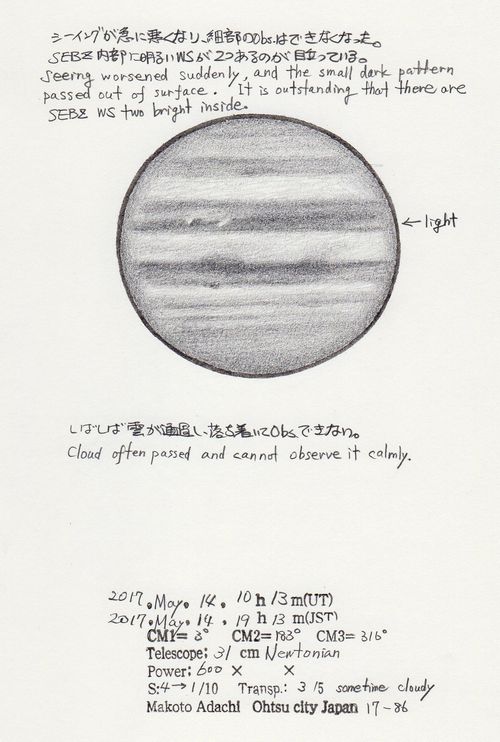 シーイングが急に悪くなり、細部のObs.はできなくなった。
SEBZ内部に明るいWSが2つあるのが目立っている。
Seeing worsened suddenly, and the small dark pattern
passed out of surface. It is outstanding that there are
SEBZ WS two bright inside.
← light
しばしば雲が通過し、落ち着いてObsできない。
Cloud often passed and cannot observe it calmly.
2017. May. 14. 10 h 13 m(UT)
2017. May. 14. 19 h 13 m(JST)
CM1= 3° CM2= 183° CM3= 316°
Telescope: 31 cm Newtonian
Power: 600 × ×
S:4→1/10 Transp.: 3/5 sometime cloudy
Makoto Adachi Ohtsu city Japan 17-86